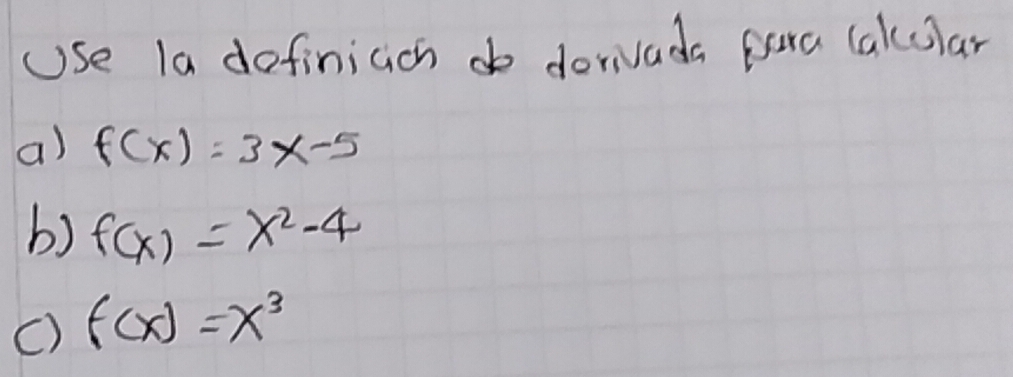 Use la definición de derivada para calcular
a) f(x) = 3x-5
b) f(x) = x²-4
c) f(x) = x³